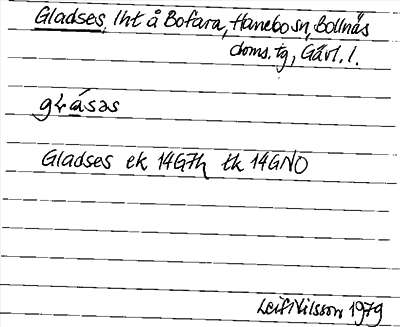 Gladses, lht å Bofara, Hanebo sn, Bollnäs
doms. tg, Gävl. l.
Gladses ek 14G7h tk 14GNO
Leif Nilsson 1979